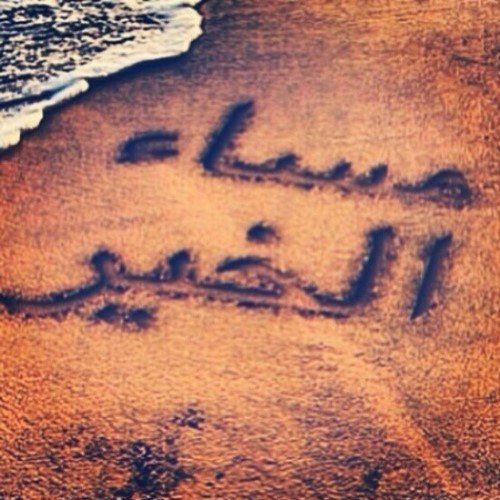 مساء
الخير